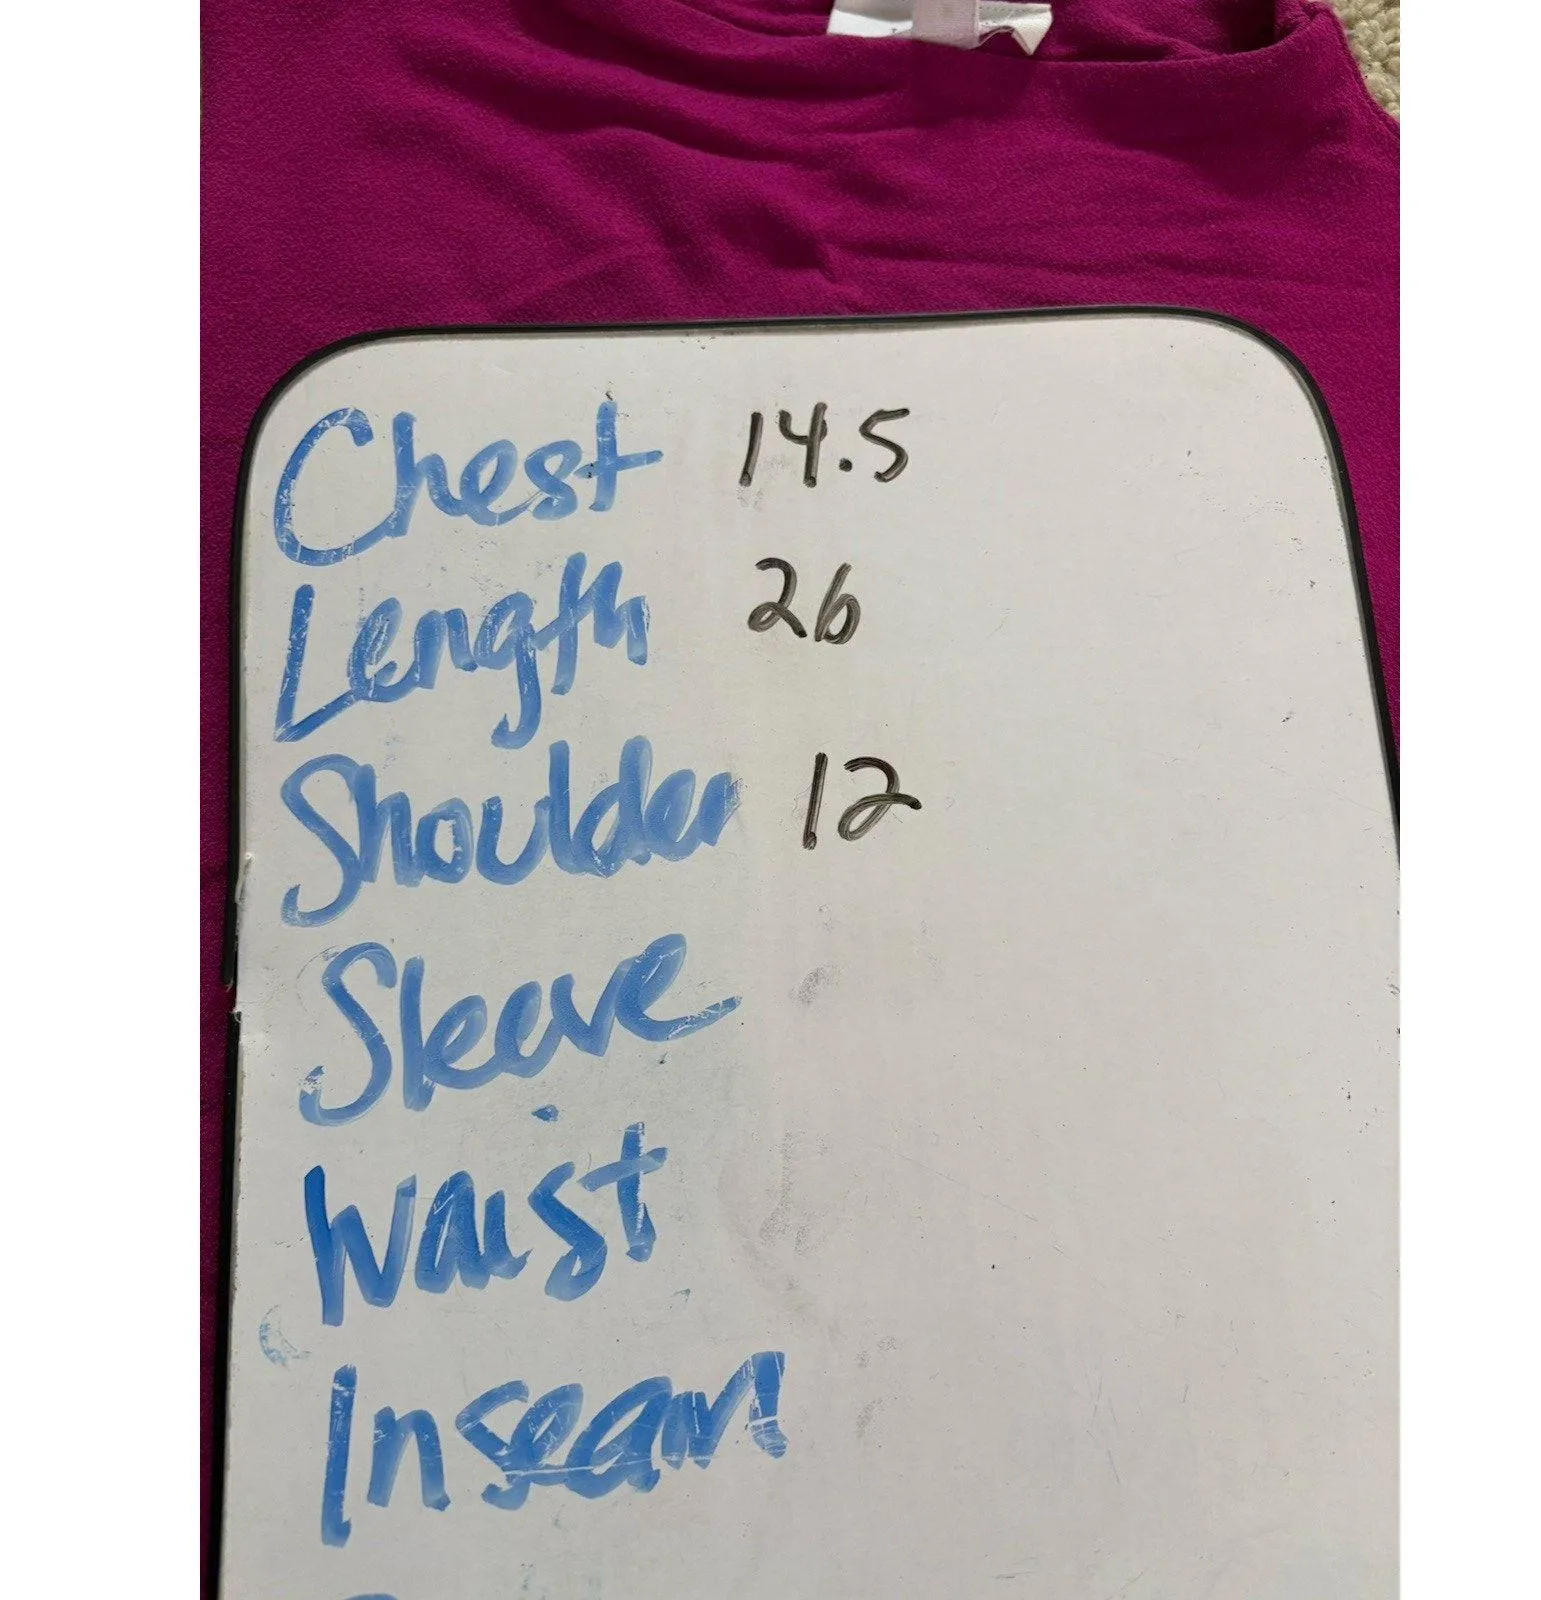 Chest 14.5
Length 26
Shoulder 12
Sleeve
Waist
Inseam